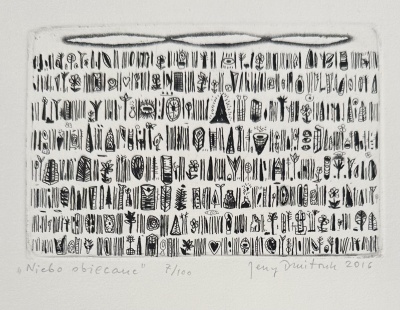 "Niebo obiecane" 7/100 Jerzy Dmitruk 2016